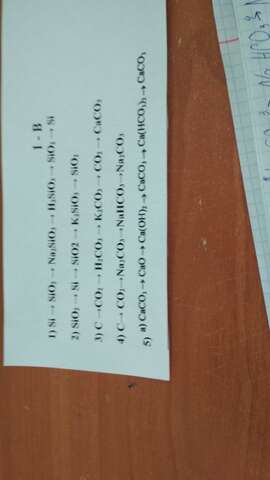 1 - В
1) Si → SiO₂ → Na₂SiO₃ → H₂SiO₃ → SiO₂ → Si
2) SiO₂ → Si → SiO2 → K₂SiO₃ → SiO₂
3) C →CO₂ → H₂CO₃ → K₂CO₃ → CO₂ → CaCO₃
4) C→ CO₂→Na₂CO₃→NaHCO₃→Na₂CO₃
5) a) CaCO₃→ CaO → Ca(OH)₂→ CaCO₃→ Ca(HCO₃)₂→ CaCO₃